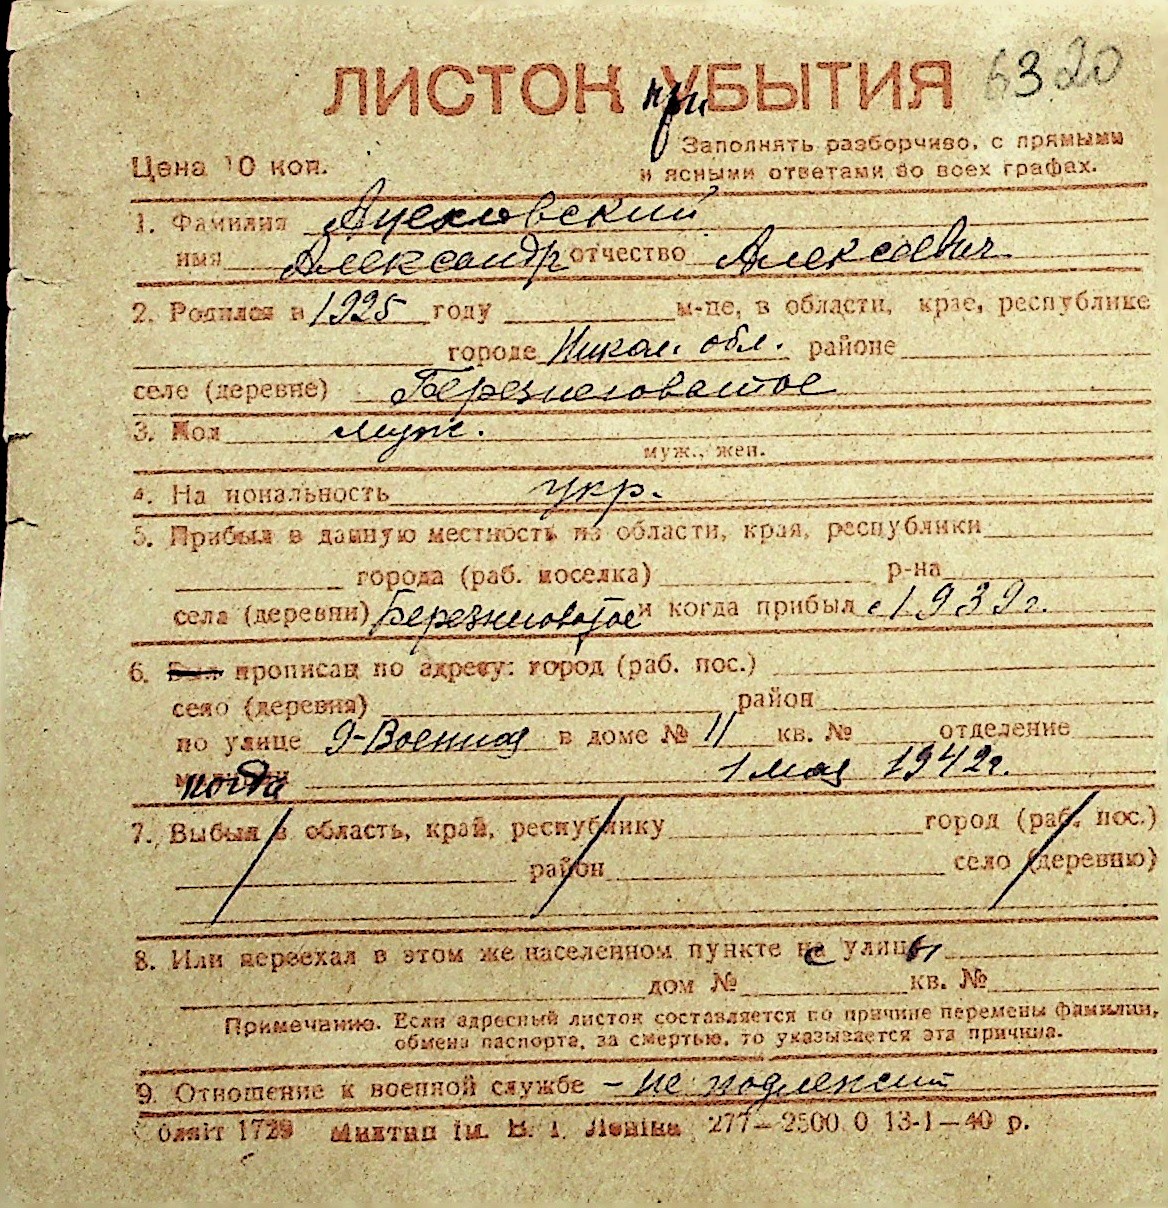 6320
ЛИСТОК при УБЫТИЯ
Заполнять разборчиво, с прямыми
Цена 10 коп.
и ясными ответами во всех графах.
1. Фамилия
имя Александр отчество Алексеевич
2. Родился в 1925 году м-це, в области, крае, республике
городе Никол. обл. районе
селе (деревне) Березнеговатое
3. Пол муж.
муж., жен.
4. Национальность укр.
5. Прибыл в данную местность из области, края, республики
города (раб. поселка) р-на
села (деревни) Березнеговатое и когда прибыл с 1939 г.
6. Был прописан по адресу: город (раб. пос.)
село (деревня) район
по улице 9-Военная в доме № 11 кв. № отделение
когда 1 мая 1942 г.
7. Выбыл в область, край, республику город (раб. пос.)
район село (деревню)
8. Или переехал в этом же населенном пункте с улицы
дом № кв. №
Примечание. Если адресный листок составляется по причине перемены фамилии,
обмена паспорта, за смертью, то указывается эта причина.
9. Отношение к военной службе – не подлежит
Облліт 1729 Миктип ім. В. І. Леніна 277–2500 0 13-1–40 р.